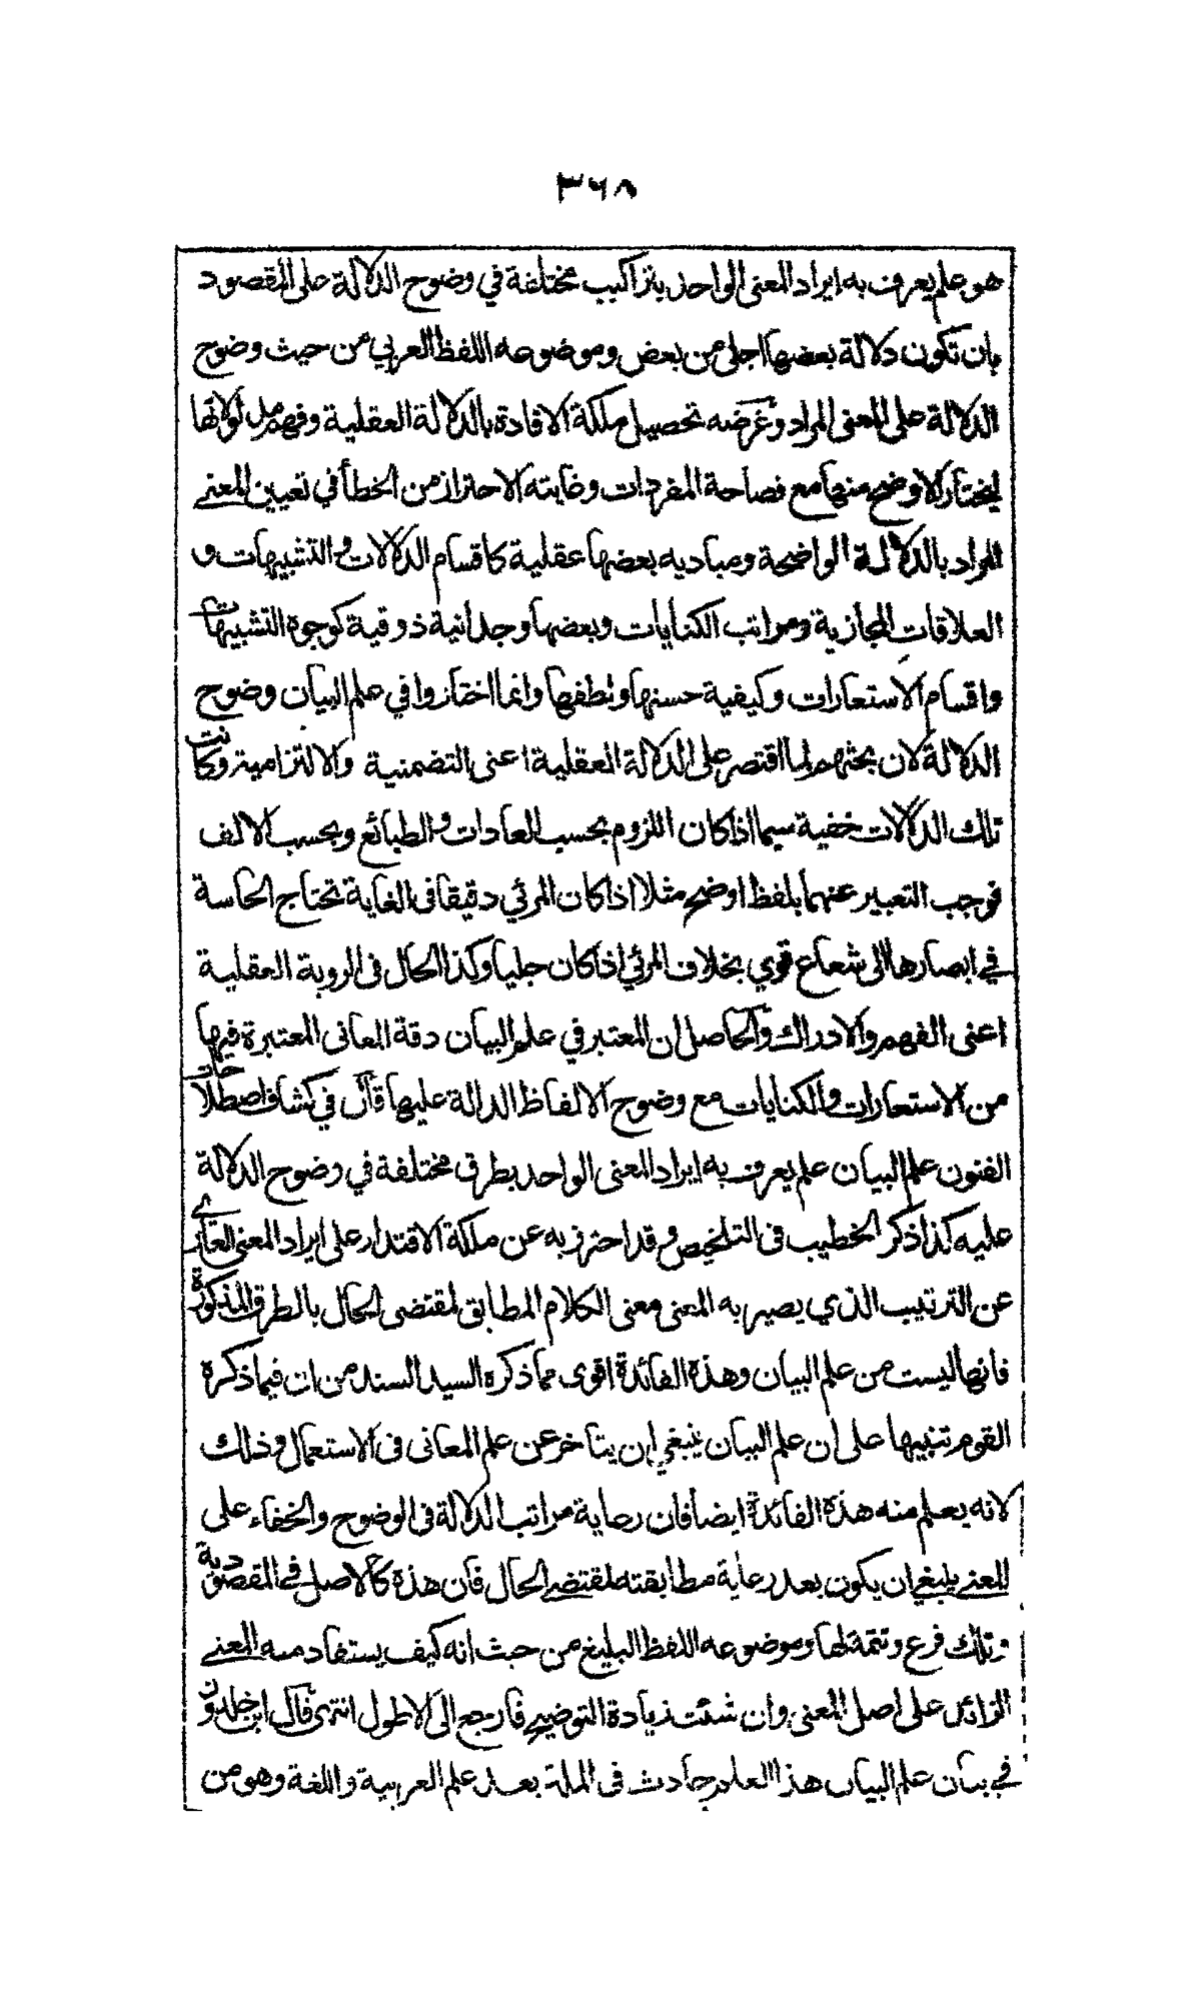 ٣٦٨
هو علم يعرف به ايراد المعنى الواحد بتراكيب مختلفة في وضوح الدلالة على المقصود
بان تكون دلالة بعضها اجلى من بعض وموضوعه اللفظ العربي من حيث وضوح
الدلالة على المعنى المراد وغرضه تحصيل ملكة الافادة بالدلالة العقلية وفهم مدلولاتها
ليختار الاوضح منها مع فصاحة المفردات وغايته الاحتراز من الخطأ في تعيين المعنى
المراد بالدلالة الواضحة ومباديه بعضها عقلية كاقسام الدلالات والتشبيهات و
العلاقات المجازية ومراتب الكنايات وبعضها وجدانية ذوقية كوجوه التشبيهات
واقسام الاستعارات وكيفية حسنها ولطفها وانما اختاروا في علم البيان وضوح
الدلالة لان بحثهم لما اقتصر على الدلالة العقلية اعنى التضمنية والالتزامية وكانت
تلك الدلالات خفية سيما اذا كان اللزوم بحسب العادات والطبائع وبحسب الالف
فوجب التعبير عنهما بلفظ اوضح مثلا اذا كان المرئي دقيقا فى الغاية تحتاج الحاسة
في ابصارها الى شعاع قوي بخلاف المرئي اذا كان جليا وكذا الحال فى الروية العقلية
اعنى الفهم والادراك والحاصل ان المعتبر في علم البيان دقة المعانى المعتبرة فيها
من الاستعارات والكنايات مع وضوح الالفاظ الدالة عليها قال في كشاف اصطلاحات
الفنون علم البيان علم يعرف به ايراد المعنى الواحد بطرق مختلفة في وضوح الدلالة
عليه كذا ذكر الخطيب فى التلخيص وقد احترز به عن ملكة الاقتدار على ايراد المعنى العاري
عن الترتيب الذي يصير به المعنى معنى الكلام المطابق لمقتضى الحال بالطرق المذكورة
فانها ليست من علم البيان وهذه الفائدة اقوى مما ذكره السيد السند من ان فيما ذكره
القوم تنبيها على ان علم البيان ينبغي ان يتاخر عن علم المعانى فى الاستعمال وذلك
لانه يعلم منه هذه الفائدة ايضا فان رعاية مراتب الدلالة فى الوضوح والخفاء على
المعنى ينبغي ان يكون بعد رعاية مطابقته لمقتضى الحال فان هذه كالاصل في المقصودية
وتلك فرع وتتمة لها وموضوعه اللفظ البليغ من حيث انه كيف يستفاد منه المعنى
الزائد على اصل المعنى وان شئت زيادة التوضيح فارجع الى الاطول انتهى قال ابن خلدون
في بيان علم البيان هذا العلم حادث فى الملة بعد علم العربية واللغة وهو من